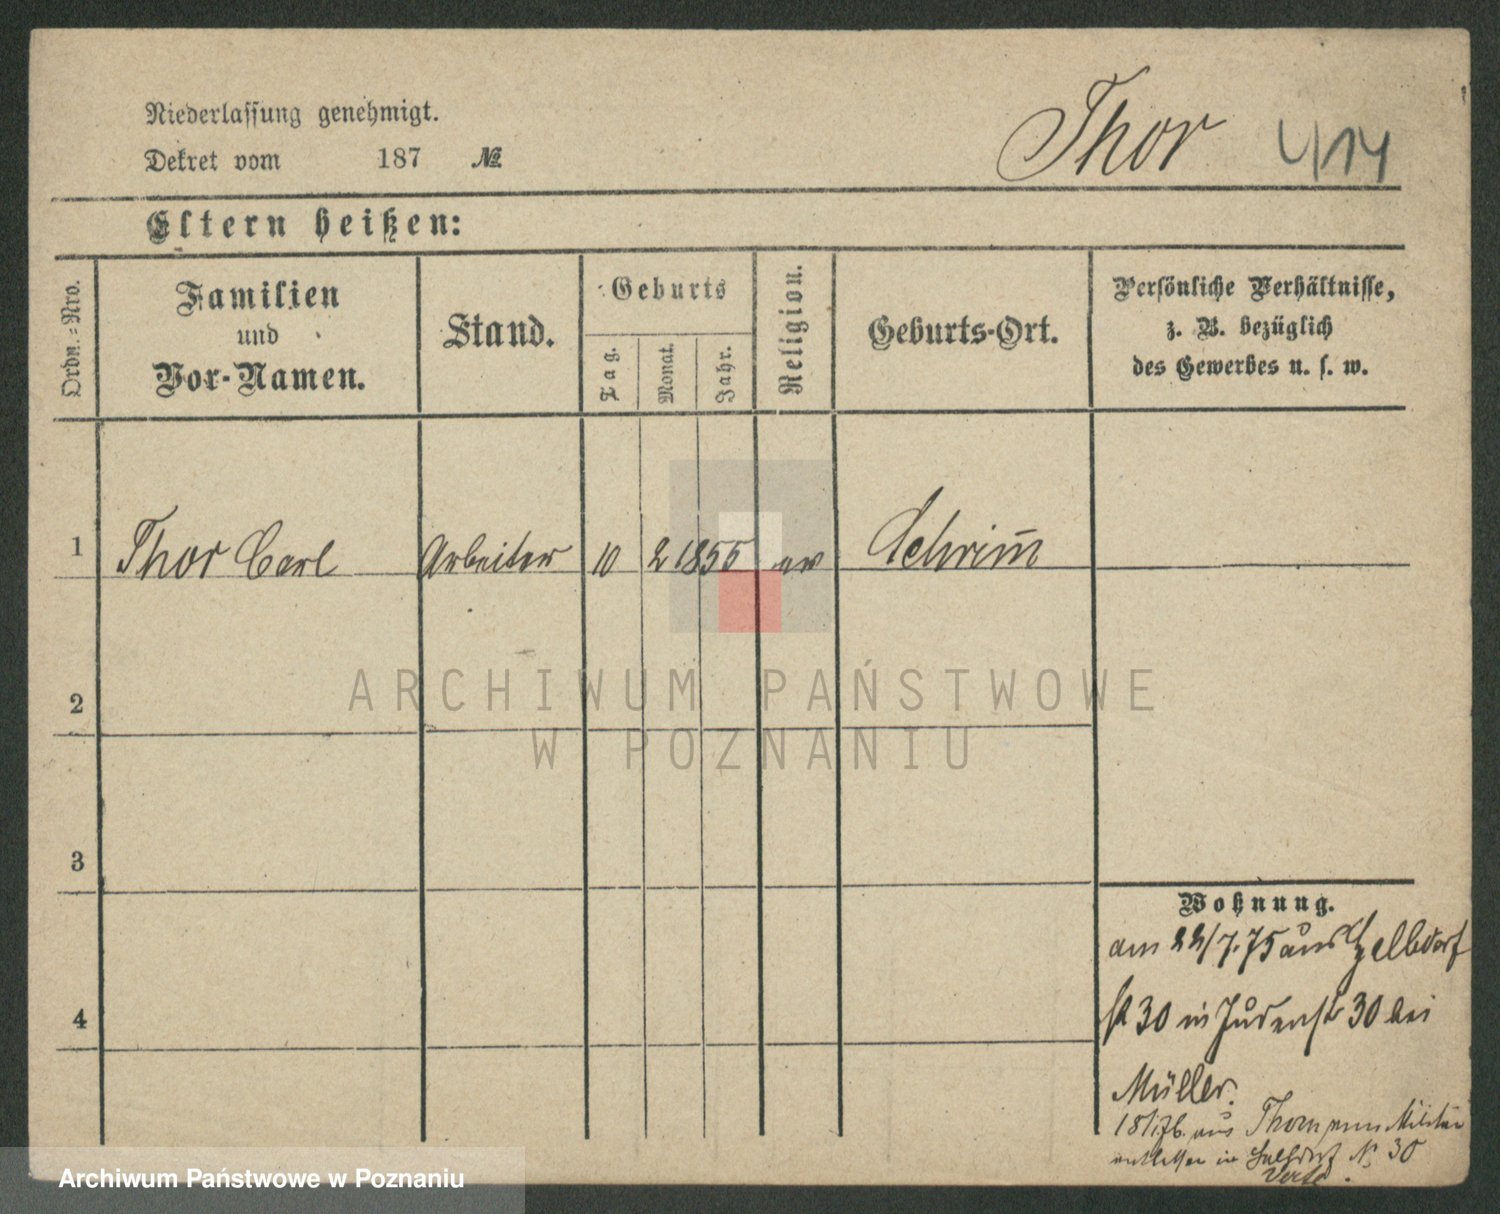 Niederlassung genehmigt.
Dekret vom 187 №
Thor
4/14
Eltern heißen:
Ordn.=Nro.
Familien
und
Vor-Namen.
Stand.
Geburts
Tag.
Monat.
Jahr.
Religion.
Geburts-Ort.
Persönliche Verhältnisse,
z. B. bezüglich
des Gewerbes u. s. w.
1 Thor Carl Arbeiter 10 2 1855 ev Schrim̄
2
3
4
ARCHIWUM PAŃSTWOWE
W POZNANIU
Wohnung.
am 22/7.75 aus
St 30 in Judenstr 30 bei
Müller.
aus Thorn zum Militair
entlassen in No 30
Verte.
Archiwum Państwowe w Poznaniu